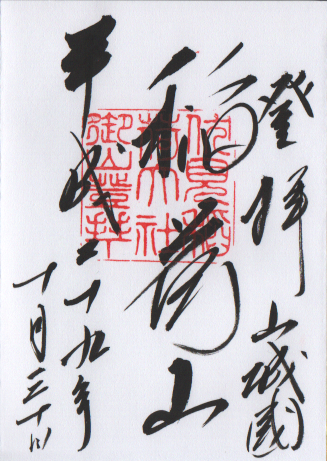 登拝 山城國
稲荷山
平成二十九年
十月三十日
伏見稲
荷大社
御山登拝